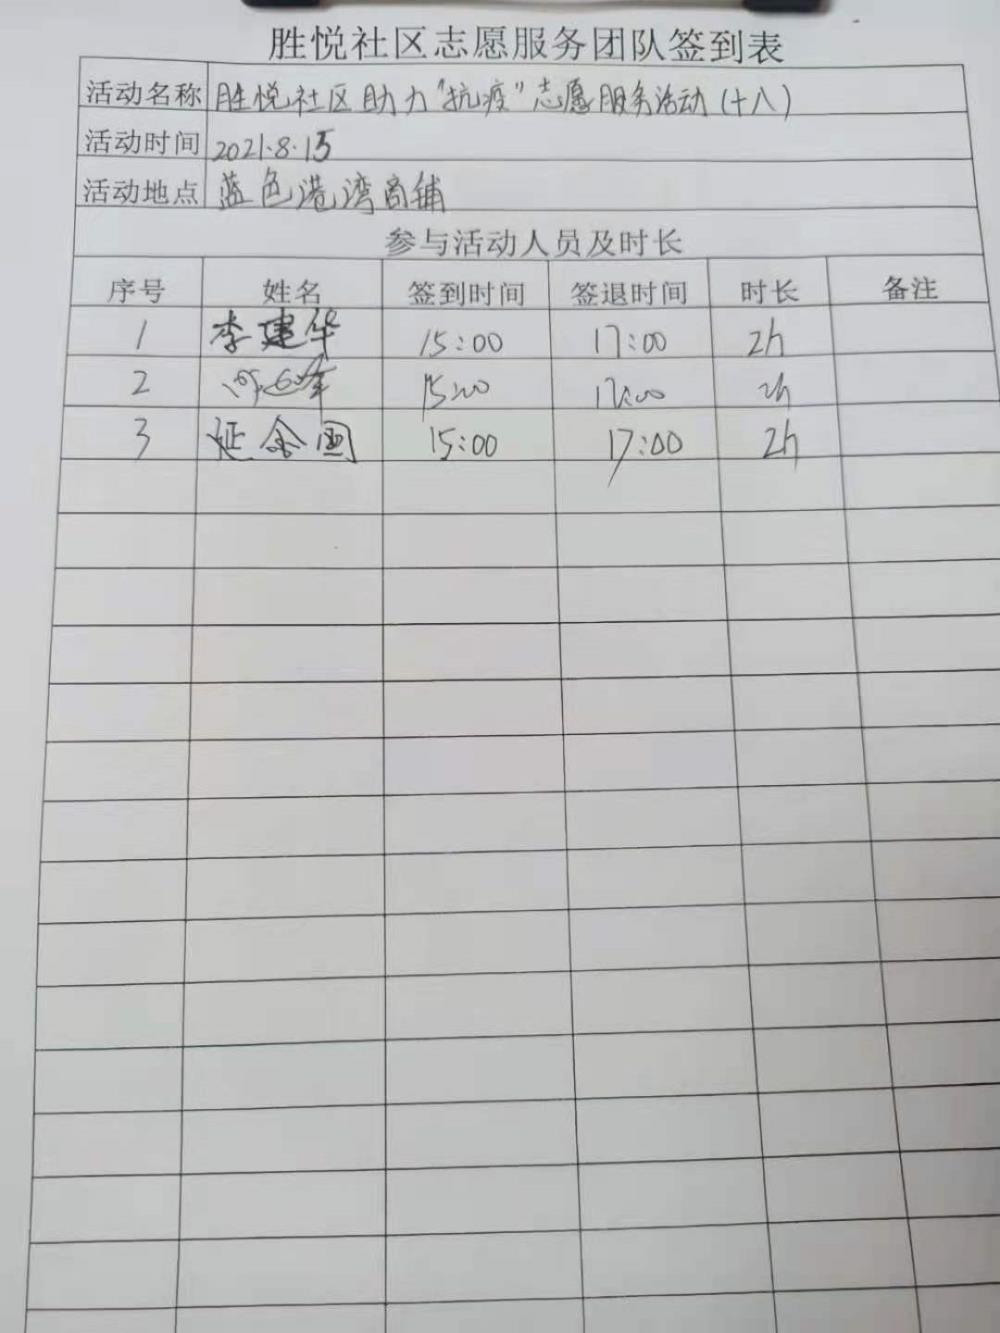 胜悦社区志愿服务团队签到表
活动名称 胜悦社区助力“抗疫”志愿服务活动(十八)
活动时间 2021.8.15
活动地点 蓝色港湾商铺
参与活动人员及时长
序号 姓名 签到时间 签退时间 时长 备注
1 李建华 15:00 17:00 2h
2 15:00 17:00 2h
3 延金国 15:00 17:00 2h